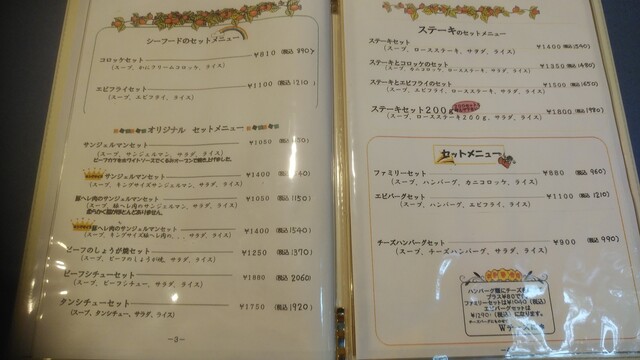 シーフードのセットメニュー
コロッケセット ¥810 (税込 890)
(スープ、かにクリームコロッケ、ライス)
エビフライセット ¥1100 (税込 1210)
(スープ、エビフライ、ライス)
オリジナル セットメニュー
サンジェルマンセット ¥1050
(スープ、サンジェルマン、サラダ、ライス)
ビーフひき肉ホワイトソースでくるみオーブンで焼き上げました。
サンジェルマンセット ¥1400
(スープ、キングサイズサンジェルマン、サラダ、ライス)
豚ヘレ肉のサンジェルマンセット ¥1050 (税込 1150)
(スープ、豚ヘレ肉のサンジェルマン、サラダ、ライス)
柔らかく脂がほとんどありません。
豚ヘレ肉のサンジェルマンセット ¥1400 (税込 1540)
(スープ、キングサイズ豚ヘレ肉の...、サラダ、ライス)
ビーフのしょうが焼セット ¥1250 (税込 1370)
(スープ、ビーフのしょうが焼、サラダ、ライス)
ビーフシチューセット ¥1880 (税込 2060)
(スープ、ビーフシチュー、サラダ、ライス)
タンシチューセット ¥1750 (税込 1920)
(スープ、タンシチュー、サラダ、ライス)
-3-
ステーキのセットメニュー
ステーキセット ¥1400 (税込 1540)
(スープ、ロースステーキ、サラダ、ライス)
ステーキとコロッケのセット ¥1350 (税込 1480)
(スープ、カニコロッケ、ロースステーキ、サラダ、ライス)
ステーキとエビフライのセット ¥1500 (税込 1650)
(スープ、エビフライ、ロースステーキ、サラダ、ライス)
ステーキセット200g ¥1800 (税込 1980)
(スープ、ロースステーキ200g、サラダ、ライス)
セットメニュー
ファミリーセット ¥880 (税込 960)
(スープ、ハンバーグ、カニコロッケ、ライス)
エビバーグセット ¥1100 (税込 1210)
(スープ、ハンバーグ、エビフライ、ライス)
チーズハンバーグセット ¥900 (税込 990)
(スープ、チーズハンバーグ、サラダ、ライス)
ハンバーグ類にチーズ
プラス¥80で
ファミリーセットは¥1040(税込)
エビバーグセットは
¥1290(税込)になります。